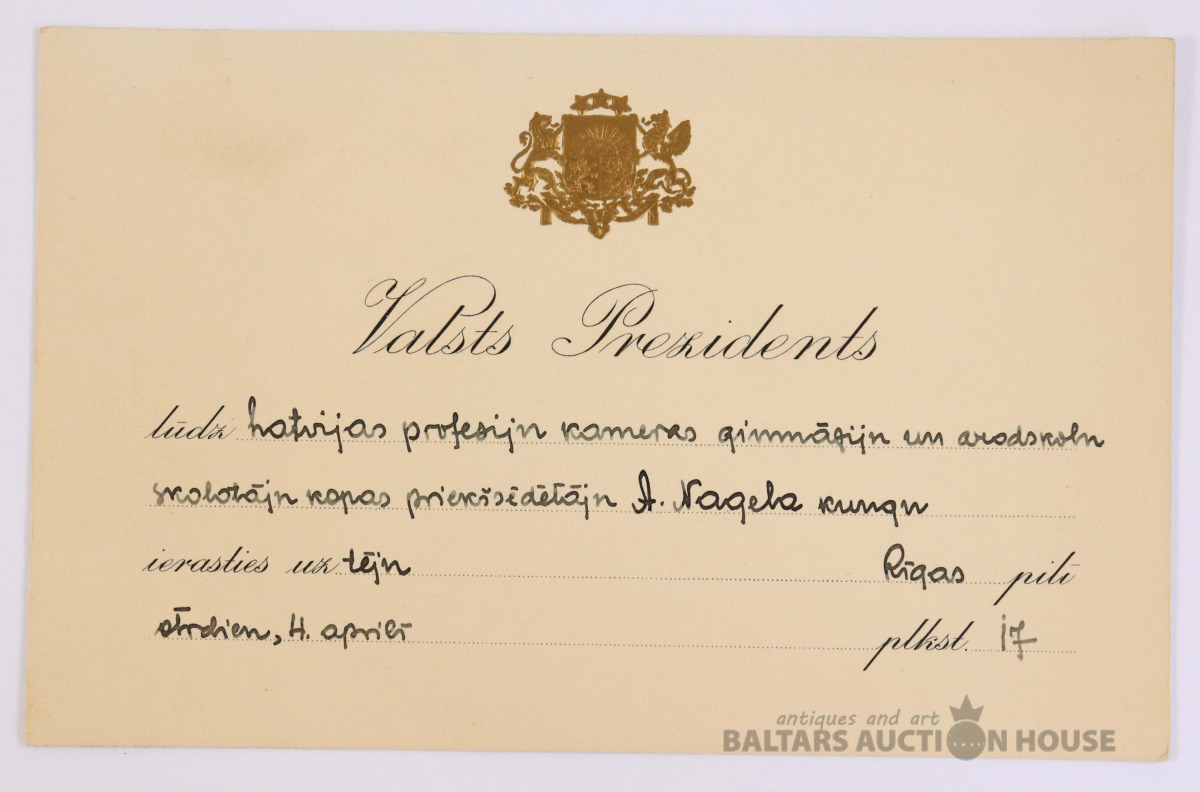 Valsts Prezidents
lūdz Latvijas profesiju kameras ģimnāziju un arodskolu
skolotāju kopas priekšsēdētāju A. Nagela kungu
ierasties uz tēju Rīgas pilī
otrdien, 4. aprilī plkst. 17
antiques and art
BALTARS AUCTION HOUSE